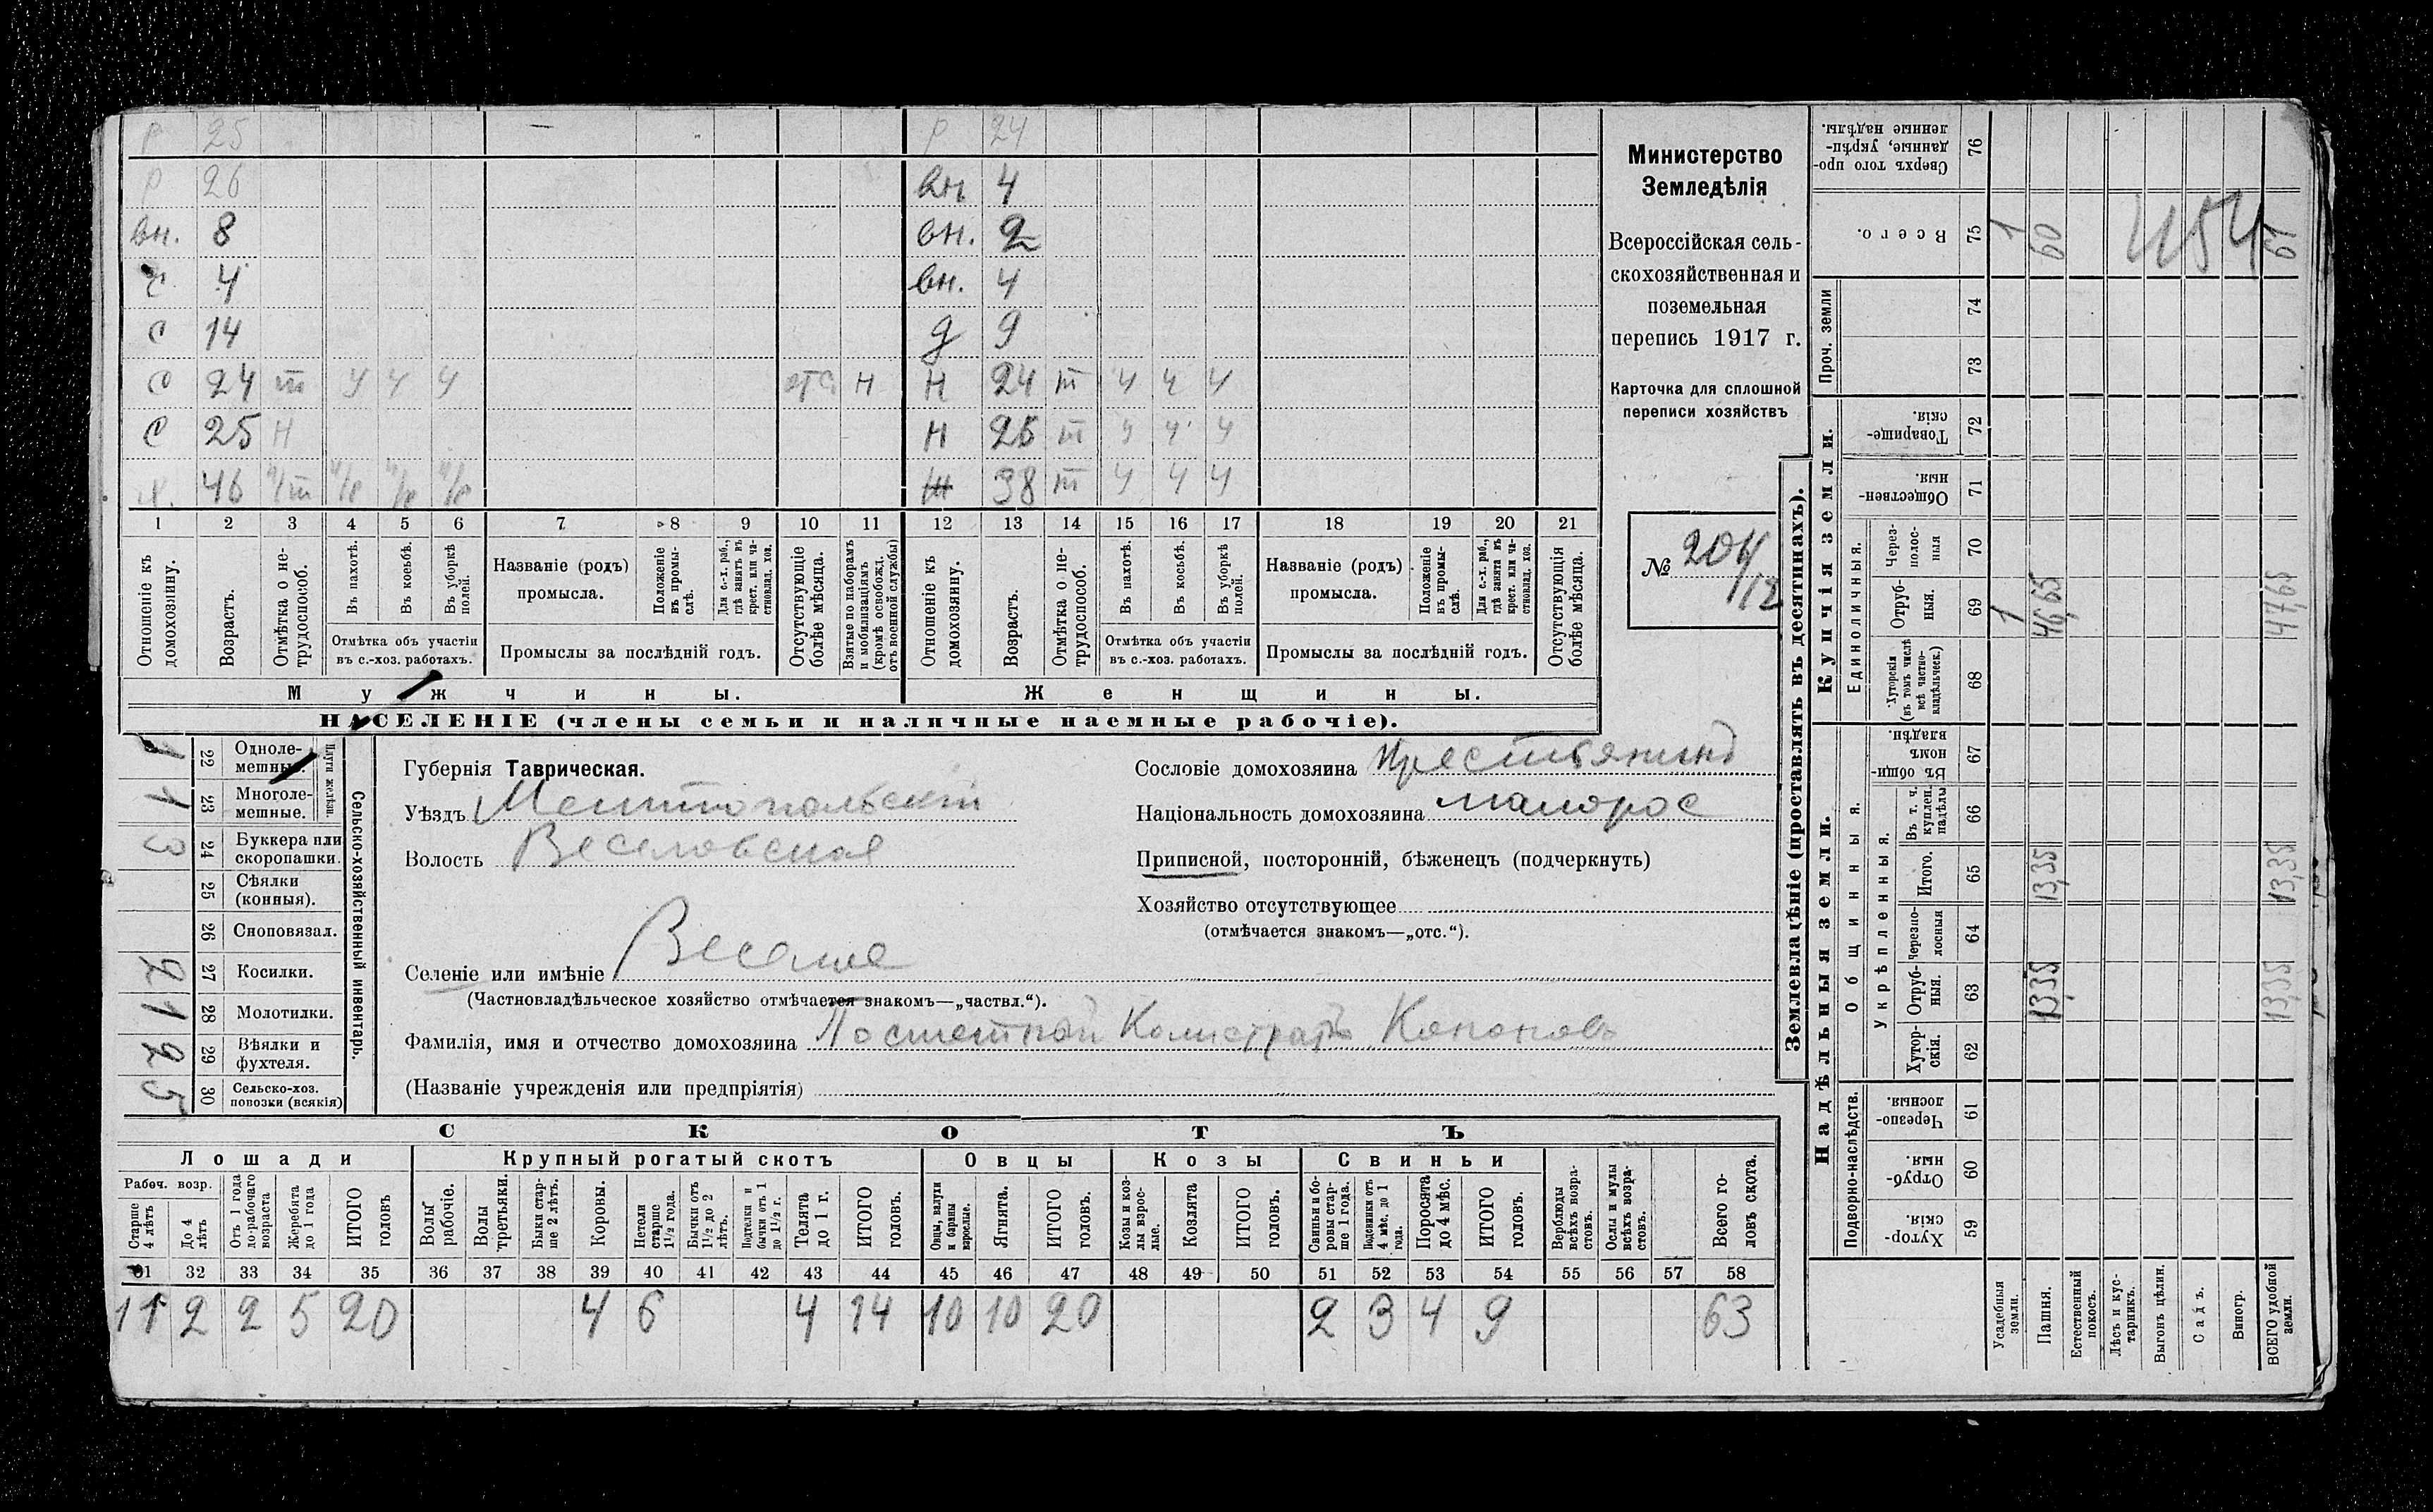 р 25 р 24
р 26 вн. 4
вн. 8 вн. 2
с 4 вн. 4
с 14 д 9
с 24 ш ч ч ч отс н н 24 ш ч ч ч
с 25 н н 25 ш ч ч ч
х. 46 ч/ш ж 38 ш ч ч ч
1 2 3 4 5 6 7 8 9 10 11 12 13 14 15 16 17 18 19 20 21
Отношеніе къ домохозяину.
Возрастъ.
Отмѣтка о не-трудоспособ.
Въ пахотѣ.
Въ косьбѣ.
Въ уборкѣ полей.
Отмѣтка объ участіи
въ с.-хоз. работахъ.
Названіе (родъ)
промысла.
Положеніе въ промы-слѣ.
Для с.-х. раб., гдѣ занятъ въ крест. или ча-стновлад. хоз.
Промыслы за послѣдній годъ.
Отсутствующіе болѣе мѣсяца.
Взятые по наборамъ и мобилизаціямъ (кромѣ освобожд. отъ военной службы)
Отношеніе къ домохозяину.
Возрастъ.
Отмѣтка о не-трудоспособ.
Въ пахотѣ.
Въ косьбѣ.
Въ уборкѣ полей.
Отмѣтка объ участіи
въ с.-хоз. работахъ.
Названіе (родъ)
промысла.
Положеніе въ промы-слѣ.
Для с.-х. раб., гдѣ занята въ крест. или ча-стновлад. хоз.
Промыслы за послѣдній годъ.
Отсутствующія болѣе мѣсяца.
Мужчины. Женщины.
НАСЕЛЕНІЕ (члены семьи и наличные наемные рабочіе).
Министерство
Земледѣлія
Всероссійская сель-
скохозяйственная и
поземельная
перепись 1917 г.
Карточка для сплошной
переписи хозяйствъ
№ 204/12
Сельско-хозяйственный инвентарь.
Плуги желѣзн.
1 22 Одноле-
мешные.
1 23 Многоле-
мешные.
3 24 Буккера или
скоропашки.
25 Сѣялки
(конныя).
26 Сноповязал.
2 27 Косилки.
1 28 Молотилки.
2 29 Вѣялки и
фухтеля.
5 30 Сельско-хоз.
повозки (всякія)
Губернія Таврическая.
Уѣздъ Мелитопольскій
Волость Веселовская
Селеніе или имѣніе Веселое
(Частновладѣльческое хозяйство отмѣчается знакомъ—„частвл.“).
Фамилія, имя и отчество домохозяина Калистратъ Кононовъ
(Названіе учрежденія или предпріятія)
Сословіе домохозяина Крестьянинъ
Національность домохозяина малорос
Приписной, посторонній, бѣженецъ (подчеркнуть)
Хозяйство отсутствующее
(отмѣчается знакомъ—„отс.“).
СКОТЪ
Лошади Крупный рогатый скотъ Овцы Козы Свиньи
Рабоч. возр.
Старше 4 лѣтъ
До 4 лѣтъ
Отъ 1 года до рабочаго возраста
Жеребята до 1 года
ИТОГО головъ
Волы рабочіе.
Волы третьяки.
Быки стар-ше 2 лѣтъ.
Коровы.
Нетели старше 1½ года.
Бычки отъ 1½ до 2 лѣтъ.
Подтелки и бычки отъ 1 до 1½ г.
Телята до 1 г.
ИТОГО головъ.
Овцы, валухи и бараны взрослые.
Ягнята.
ИТОГО головъ.
Козы и коз-лы взрос-лые.
Козлята
ИТОГО головъ.
Свиньи и бо-ровы стар-ше 1 года.
Подсвинки отъ 4 мѣс. до 1 года.
Поросята до 4 мѣс.
ИТОГО головъ.
Верблюды всѣхъ возра-стовъ.
Ослы и мулы всѣхъ возра-стовъ.
Всего го-ловъ скота.
31 32 33 34 35 36 37 38 39 40 41 42 43 44 45 46 47 48 49 50 51 52 53 54 55 56 57 58
11 2 2 5 20 4 6 4 14 10 10 20 2 3 4 9 63
Землевладѣніе (проставлять въ десятинахъ).
Надѣльныя земли.
Подворно-наслѣдств.
Хутор-скія. 59
Отруб-ныя. 60
Черезпо-лосныя 61
Общинныя.
Укрѣпленныя.
Хутор-скія. 62
Отруб-ныя. 63
Черезпо-лосныя 64
Итого. 65
Въ т. ч. куплен. надѣлы 66
Въ общин-номъ владѣн. 67
Купчія земли.
Единоличныя.
Хуторскія (въ томъ числѣ всѣ частно-владѣльческ.) 68
Отруб-ныя. 69
Через-полос-ныя 70
Обществен-ныя. 71
Товарище-скія. 72
Проч. земли
73
74
Всего. 75
Сверхъ того про-данные, укрѣп-ленные надѣлы. 76
Усадебныя земли. 1 1
Пашня. 13,35 13,35 46,65 60
Естественный покосъ.
Лѣсъ и кус-тарникъ.
Выгонъ цѣлин.
Садъ.
Виногр.
ВСЕГО удобной земли. 13,35 13,35 47,65 61
454